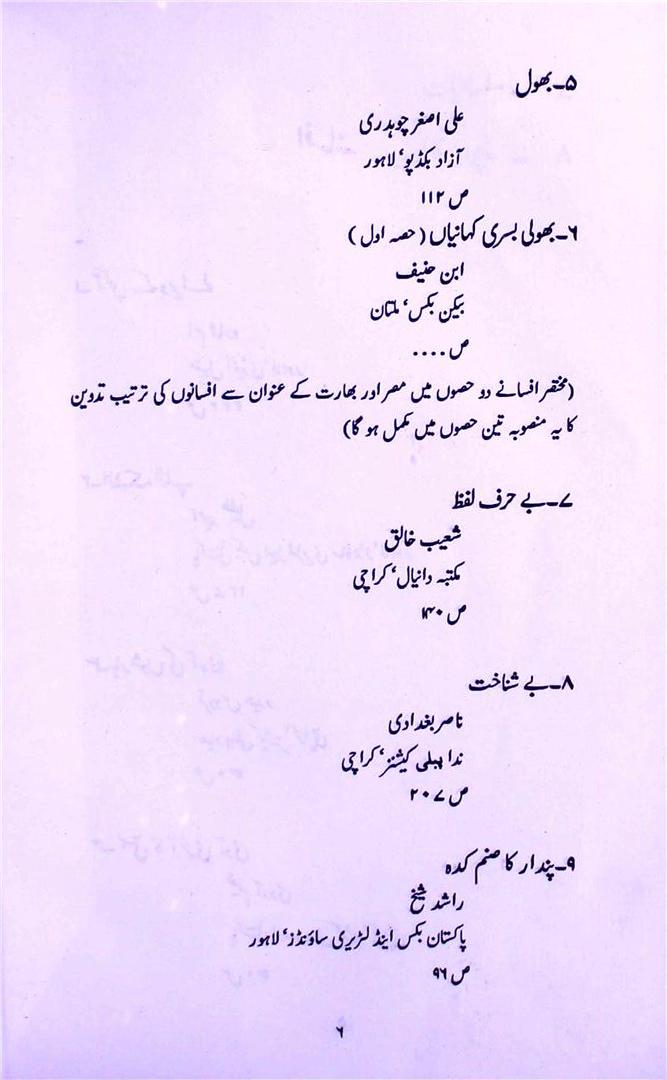 ۵۔بھول
علی اصغر چوہدری
آزاد بکڈپو‘ لاہور
ص ۱۱۲
۶۔بھولی بسری کہانیاں (حصہ اول)
ابن حنیف
بیکن بکس‘ ملتان
ص ....
(مختصر افسانے دو حصوں میں مصر اور بھارت کے عنوان سے افسانوں کی ترتیب تدوین
کا یہ منصوبہ تین حصوں میں مکمل ہو گا)
۷۔بے حرف لفظ
شعیب خالق
مکتبہ دانیال‘ کراچی
ص ۱۴۰
۸۔بے شناخت
ناصر بغدادی
ندا پبلی کیشنز‘ کراچی
ص ۲۰۷
۹۔پندار کا صنم کدہ
راشد شیخ
پاکستان بکس اینڈ لٹریری ساؤنڈز‘ لاہور
ص ۹۶
۶